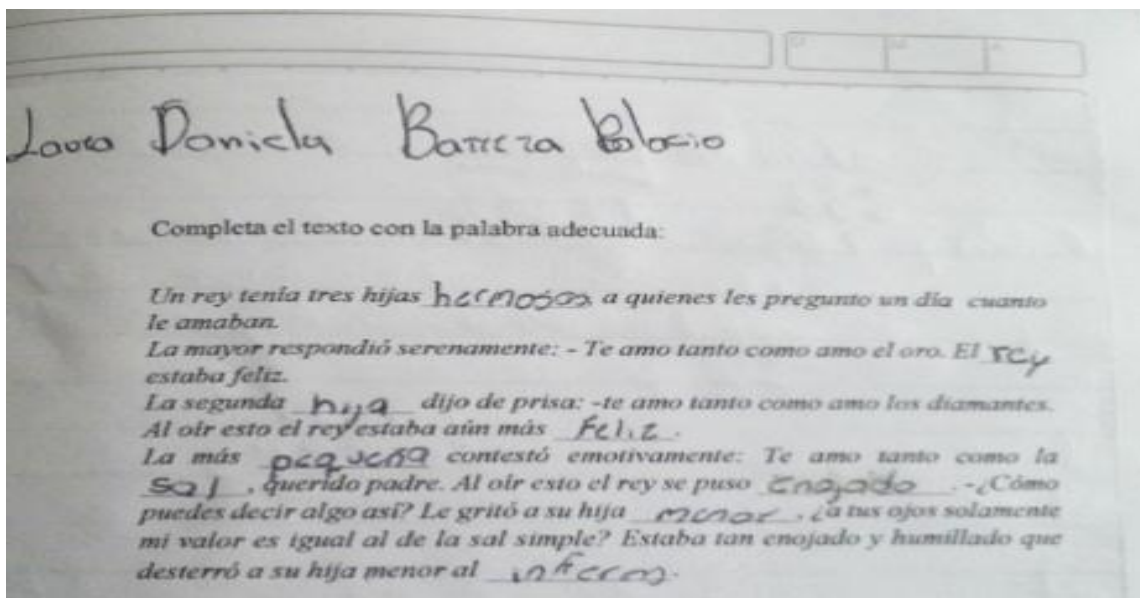 Laura Daniela Barreza Palacio
Completa el texto con la palabra adecuada:
Un rey tenía tres hijas hermosas a quienes les pregunto un día cuanto
le amaban.
La mayor respondió serenamente: - Te amo tanto como amo el oro. El rey
estaba feliz.
La segunda hija dijo de prisa: -te amo tanto como amo los diamantes.
Al oír esto el rey estaba aún más feliz.
La más pequeña contestó emotivamente: Te amo tanto como la
sal, querido padre. Al oír esto el rey se puso enojado. -¿Cómo
puedes decir algo así? Le gritó a su hija menor. ¿a tus ojos solamente
mi valor es igual al de la sal simple? Estaba tan enojado y humillado que
desterró a su hija menor al